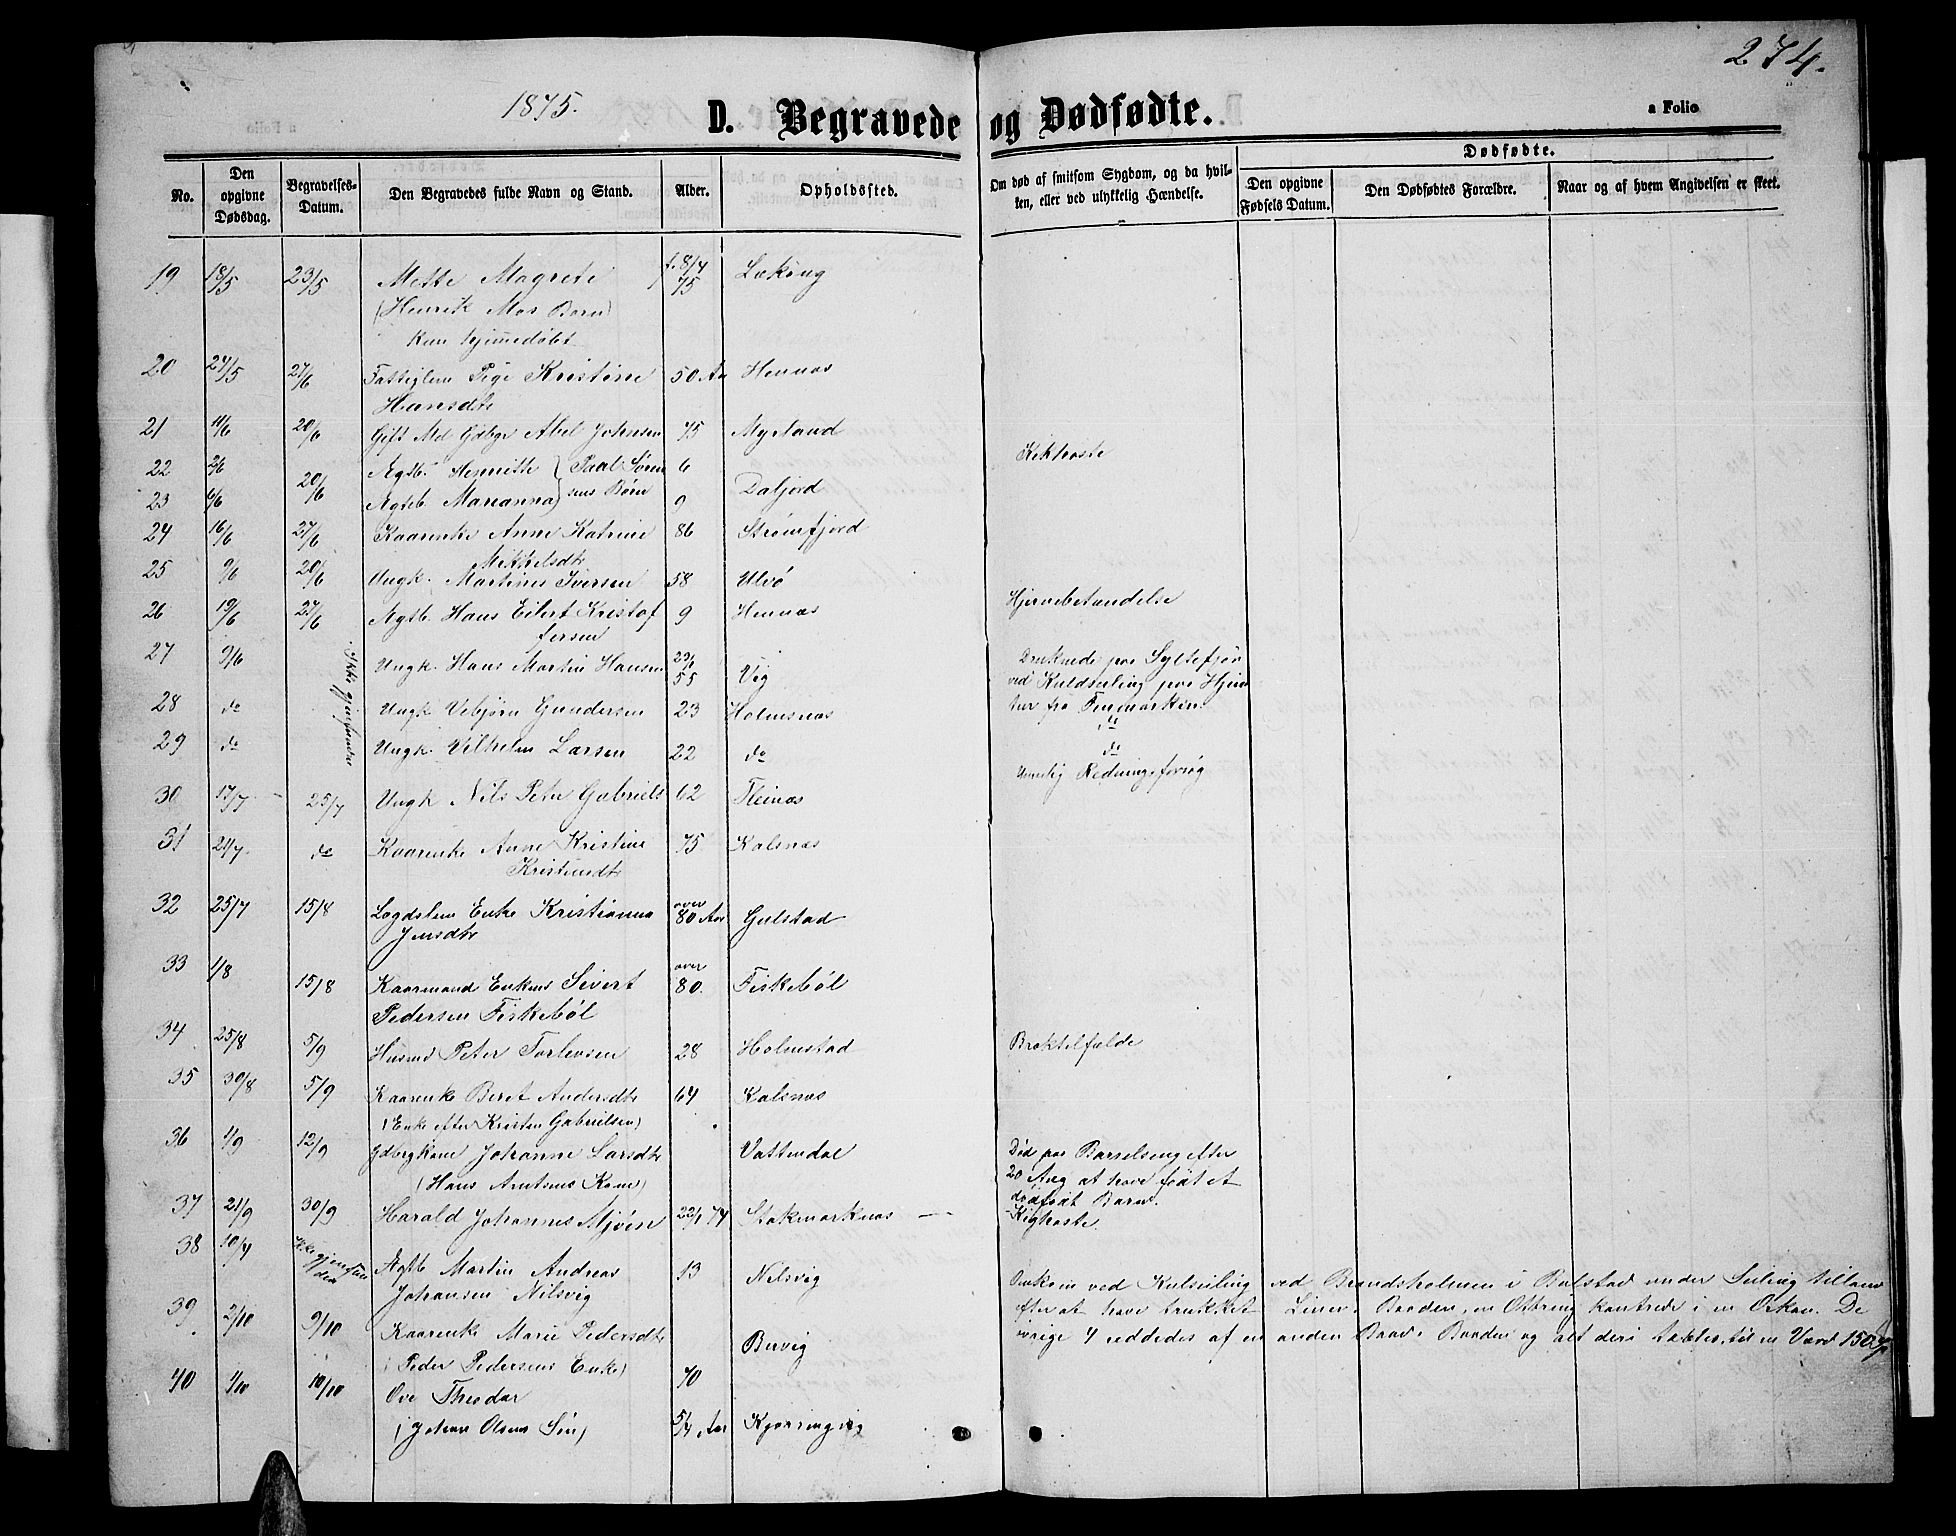 274.
1875.
D. Begravede og Dødfødte.
a Folio
No.
Den opgivne Dødsdag.
Begravelses-Datum.
Den Begravedes fulde Navn og Stand.
Alder.
Opholdssted.
Om død af smitsom Sygdom, og da hvilken, eller ved ulykkelig Hændelse.
Dødfødte.
Den opgivne Fødsels Datum.
Den Dødfødtes Forældre.
Naar og af hvem Angivelsen er skeet.
19 18/5 23/5 Mette Magrete f. 8/4 75
(Henrik Mos Barn)
kun hjemmedøbt
20 24/5 27/6 Fattiglem Pige Kristine 50 Aar Hennes
Hansdtr
21 11/6 20/6 Gift Md Gdbgr Abel Johnsen 75 Myrland
22 2/6 20/6 Ægtb. Henriette (Paal Søren 6 Kikhoste
23 6/6 Ægteb. Marianna) sens Børn 9 Daljord
24 16/6 27/6 Kaarenke Anne Katrine 86 Strømfjord
Mikkelsdtr
25 9/6 20/6 Ungk. Martinus Iversen 58 Ulvø
26 19/6 27/6 Ægtb. Hans Eilert Kristof 9 Hennes Hjernebetændelse
fersen
27 9/6 Ikke gjenfundne Ungk. Hans Martin Hansen 55 Vig Druknede paa Syltefjor
ved Kuldseiling paa Hjem
tur fra Finmarken.
28 do Ungk Vebjørn Gundersen 23 Holmsnes do
29 do Ungk. Vilhelm Larsen 22 do do
Redningsforsøg
30 17/7 25/7 Ungk Nils Peter Gabriels 62 Fleines
31 21/7 do Kaarenke Anne Kristine 75 Kalsnes
32 25/7 15/8 Lægdslem Enke Kristianna over 80 Aar Gulstad
Jensdtr
33 1/8 15/8 Kaarmand Enkem Sivert over 80. Fiskebøl
Pedersen Fiskebøl
34 25/8 5/9 Husmd Peter Torlevsen 28 Holmstad Broktilfælde
35 30/8 5/9 Kaarenke Beret Andersdtr 64 Kalsnes
(Enke efter Kristen Gabrielsen)
36 1/9 12/9 Gdbrgkone Johanne Larsdtr Vattendal Død paa Barselseng efter
(Hans Arntsens Kone) 20 Aug at have født et
dødfødt Barn.
37 21/9 30/9 Harald Johannes Mjøen 22/1 74 Stokmarknes Kighoste
38 10/4 Ikke gjenfunden Ægtb Martin Andreas 13 Nilsvig Omkom ved Kulseiling ved Brandsholmen i Balstad under Seiling tilland
Johansen Nilsvig efter at have trukket Liner. Baaden, en Otring kantrede i en Orkan. De
øvrige 4 reddedes af en anden Baad. Baaden og alt deri tabtes, til en Værd 150
39 2/10 9/10 Kaarenke Marie Pedersdtr Bervig
(Peder Pedersens Enke) 70
40 1/10 10/10 Ove Theodor
(Johan Olsens Søn) 5/4 Aar Kjørringvig